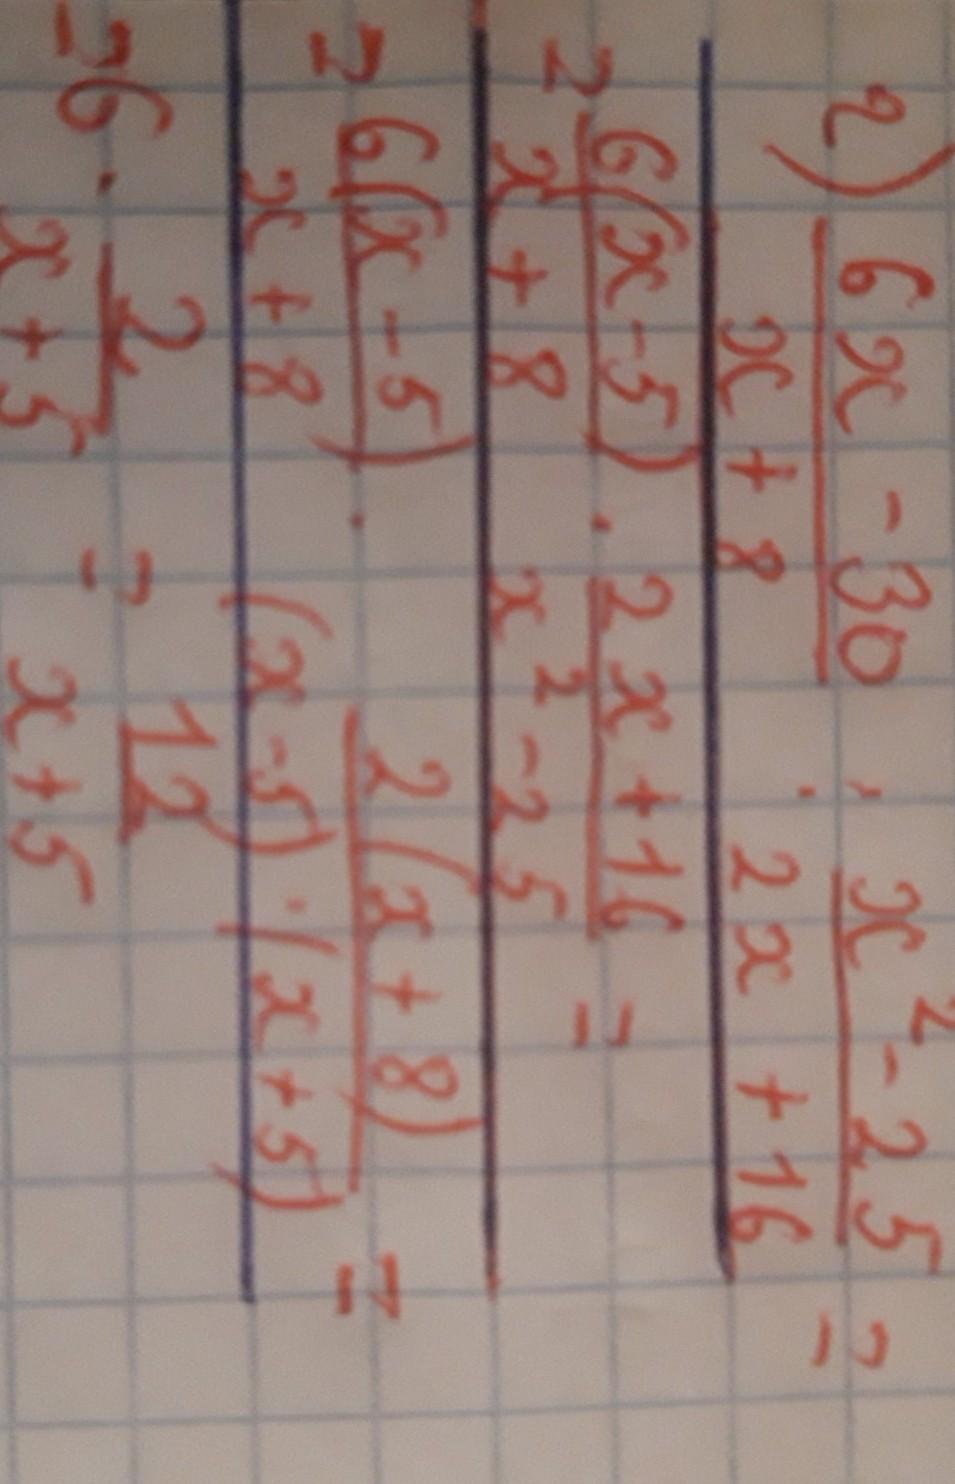 2) (6x - 30)/(x + 8) : (x² - 25)/(2x + 16) =
= (6(x - 5))/(x + 8) · (2x + 16)/(x² - 25) =
= (6(x - 5))/(x + 8) · (2(x + 8))/((x - 5) · (x + 5)) =
= 6 · 2/(x + 5) = 12/(x + 5)